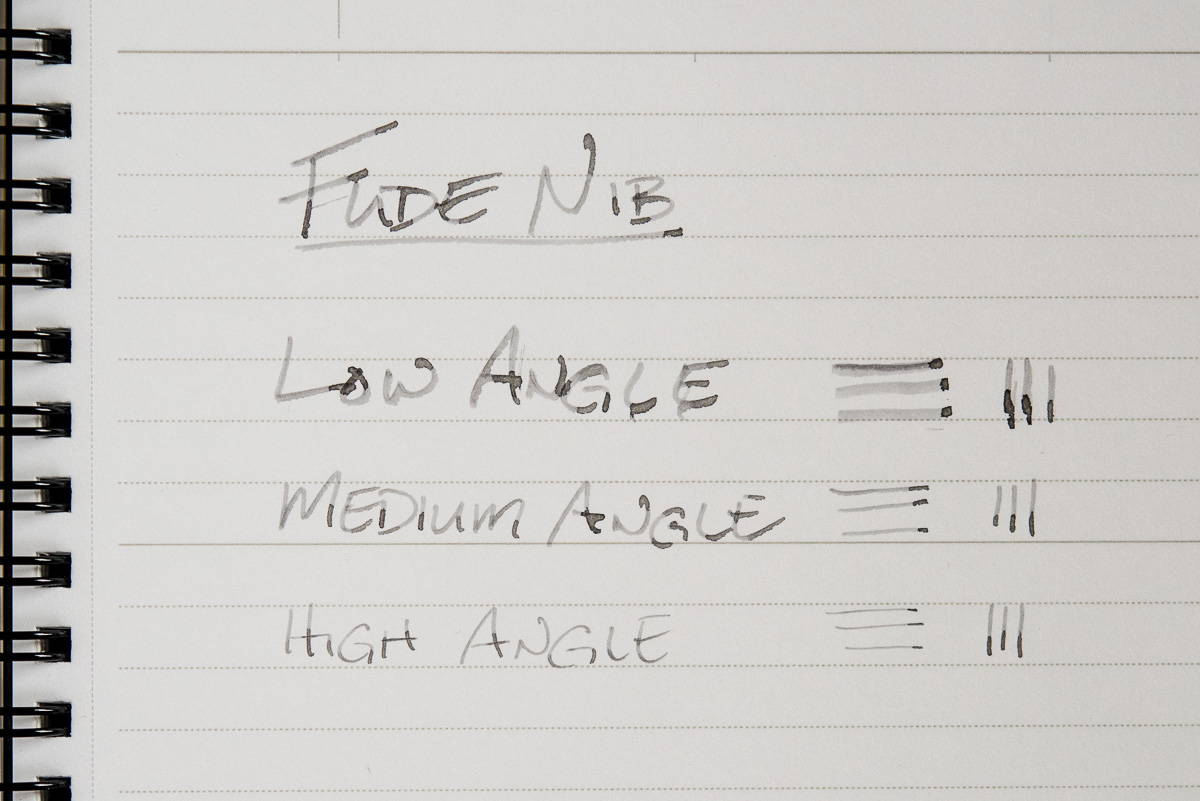 FUDE NIB
LOW ANGLE
MEDIUM ANGLE
HIGH ANGLE